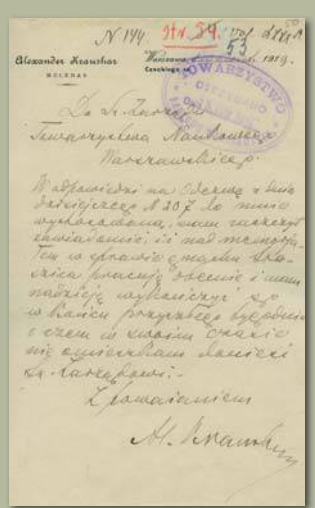 N 144. Str. 54.
53
Alexander Kraushar
MECENAS
Warszawa, 1919.
Czackiego
TOWARZYSTWO
OTRZYMANO
Do Sz. Zarządu
Towarzystwa Naukowego
Warszawskiego.
W odpowiedzi na Odezwę z dnia
dzisiejszego N 207 do mnie
wystosowaną, mam zaszczyt
zawiadomić, iż nad memorja-
łem w sprawie gmachu Sta-
szica pracuję obecnie i mam
nadzieję wykończyć go
w końcu przyszłego tygodnia
o czem w swoim czasie
nie omieszkam donieść
Sz. Zarządowi.
Z poważaniem
Al. Kraushar